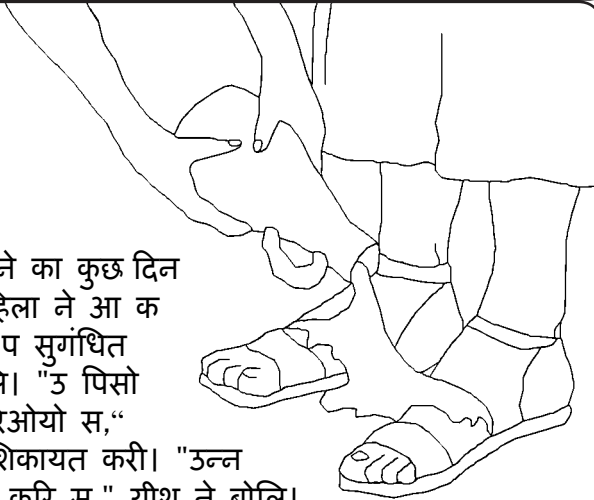 का कुछ दिन
ने आ क
सुगंधित
"उ पिसो
स,“
शिकायत करी। "उन्न
करि स," यीशु ने बोलि।